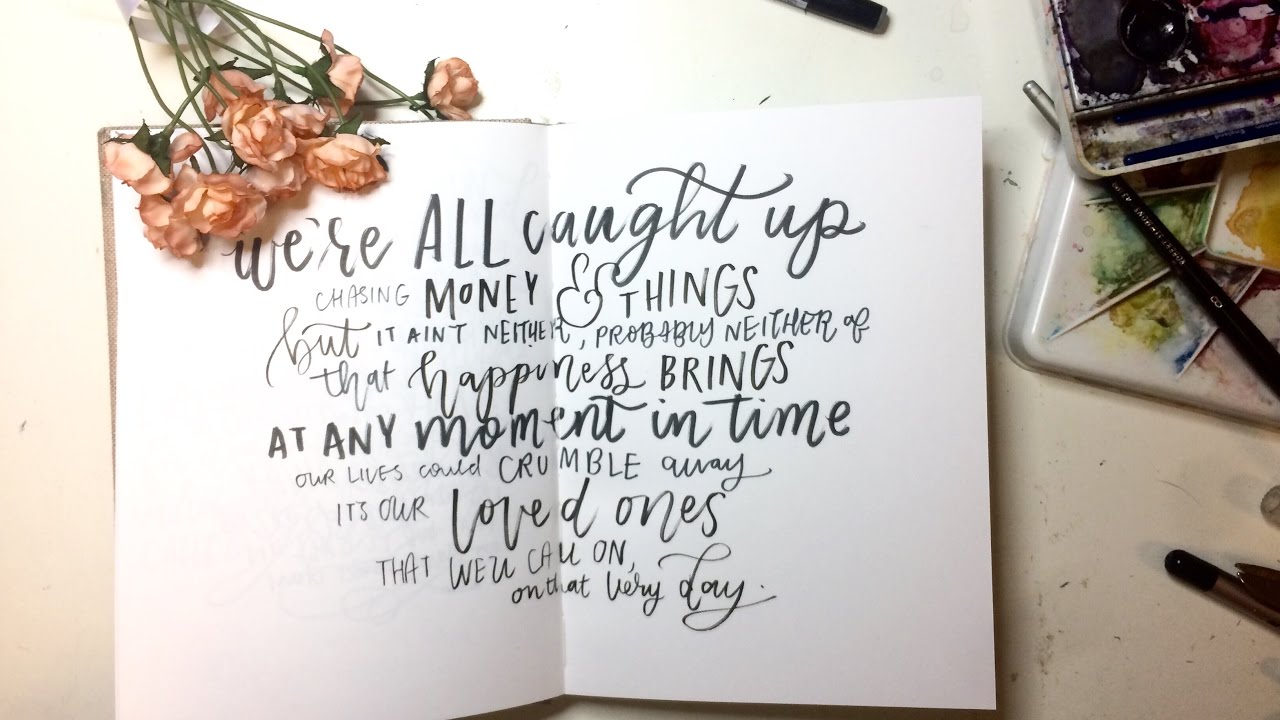 we're ALL caught up
CHASING MONEY & THINGS
but IT AIN'T NEITHER, PROBABLY NEITHER of
that happiness BRINGS
AT ANY moment in time
OUR LIVES could CRUMBLE away
IT'S OUR loved ones
THAT WE'LL CALL ON,
on that very day.